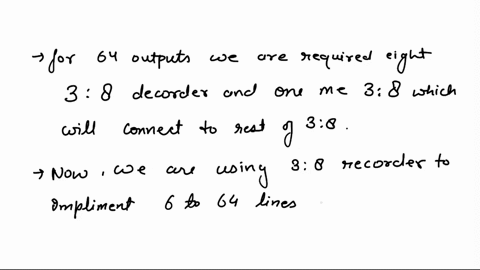 → for 64 outputs we are required eight
3 : 8 decorder and one me 3:8 which
will connect to rest of 3:8.
→ Now, we are using 3:8 recorder to
impliment 6 to 64 lines